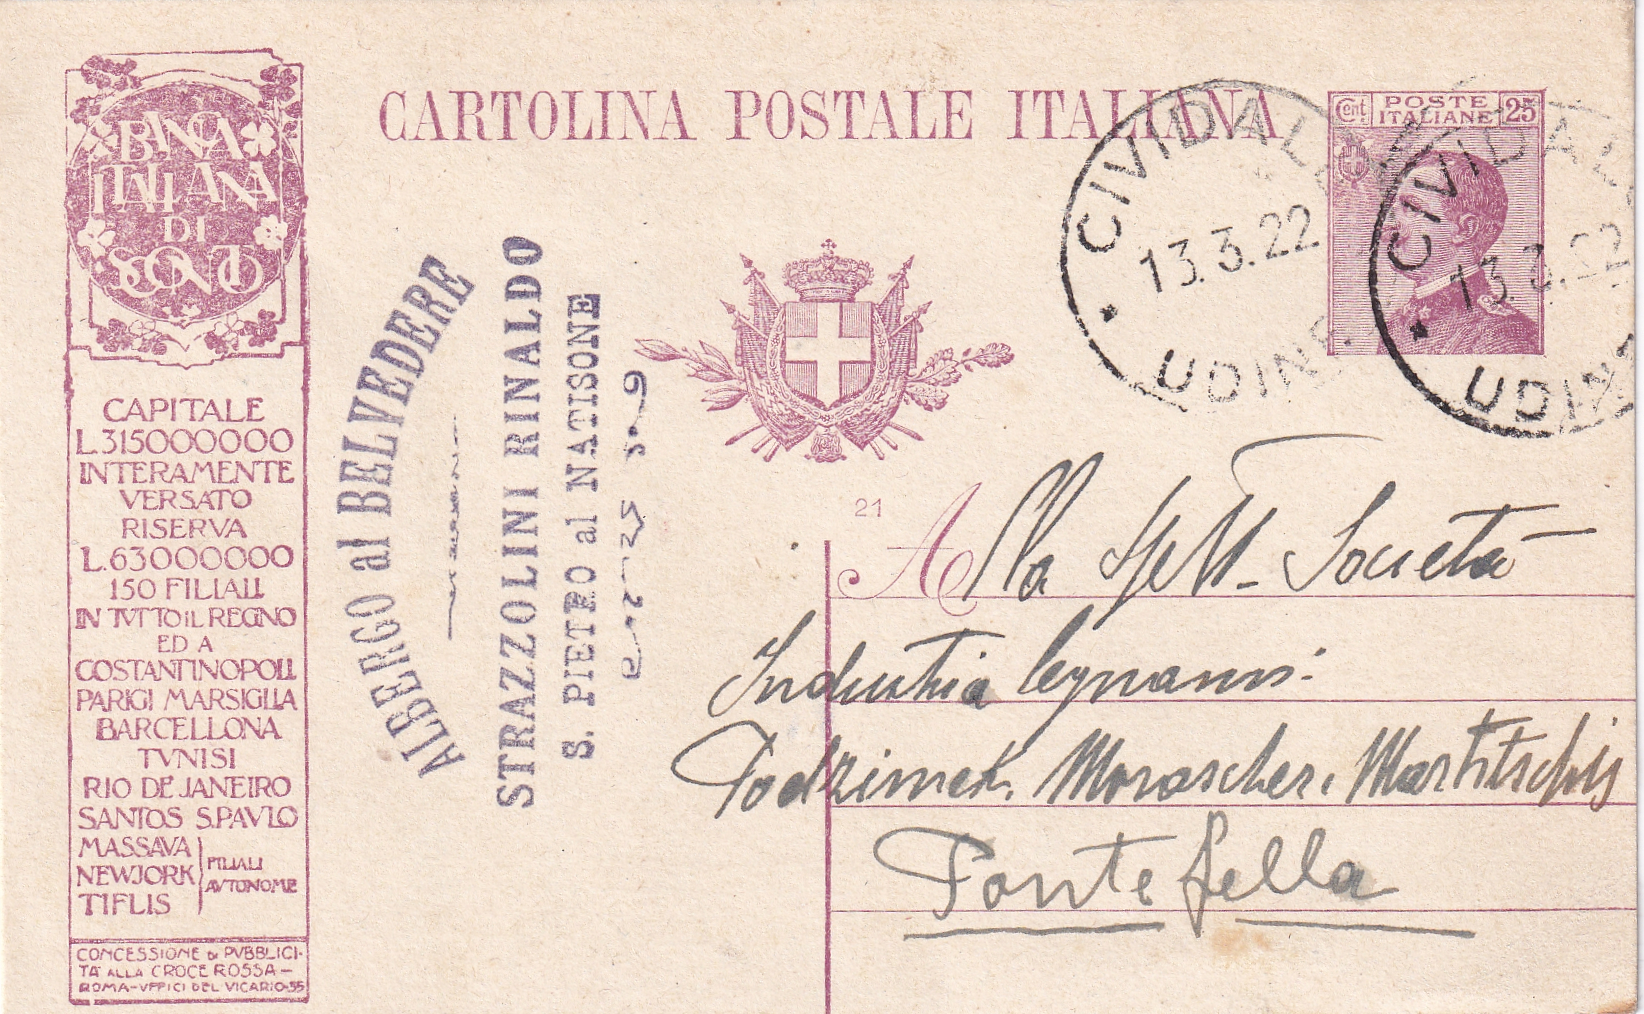 BANCA
ITALIANA
DI
SCONTO
CAPITALE
L.315000000
INTERAMENTE
VERSATO
RISERVA
L.63000000
150 FILIALI
IN TVTTO IL REGNO
ED A
COSTANTINOPOLI
PARIGI MARSIGLIA
BARCELLONA
TVNISI
RIO DE JANEIRO
SANTOS S.PAVLO
MASSAVA
NEWJORK
TIFLIS
FILIALI
AVTONOME
CONCESSIONE DI PVBBLICI-
TÀ ALLA CROCE ROSSA-
ROMA-VFFICI DEL VICARIO-35
ALBERGO al BELVEDERE
STRAZZOLINI RINALDO
S. PIETRO al NATISONE
CARTOLINA POSTALE ITALIANA
CIVIDALE
13.3.22
UDINE
Cent. POSTE ITALIANE 25
CIVIDALE
13.3.22
UDINE
21
Alla Spett. Società
Industria legnami
Podzimek. Morascher. Martitschig
Pontefella